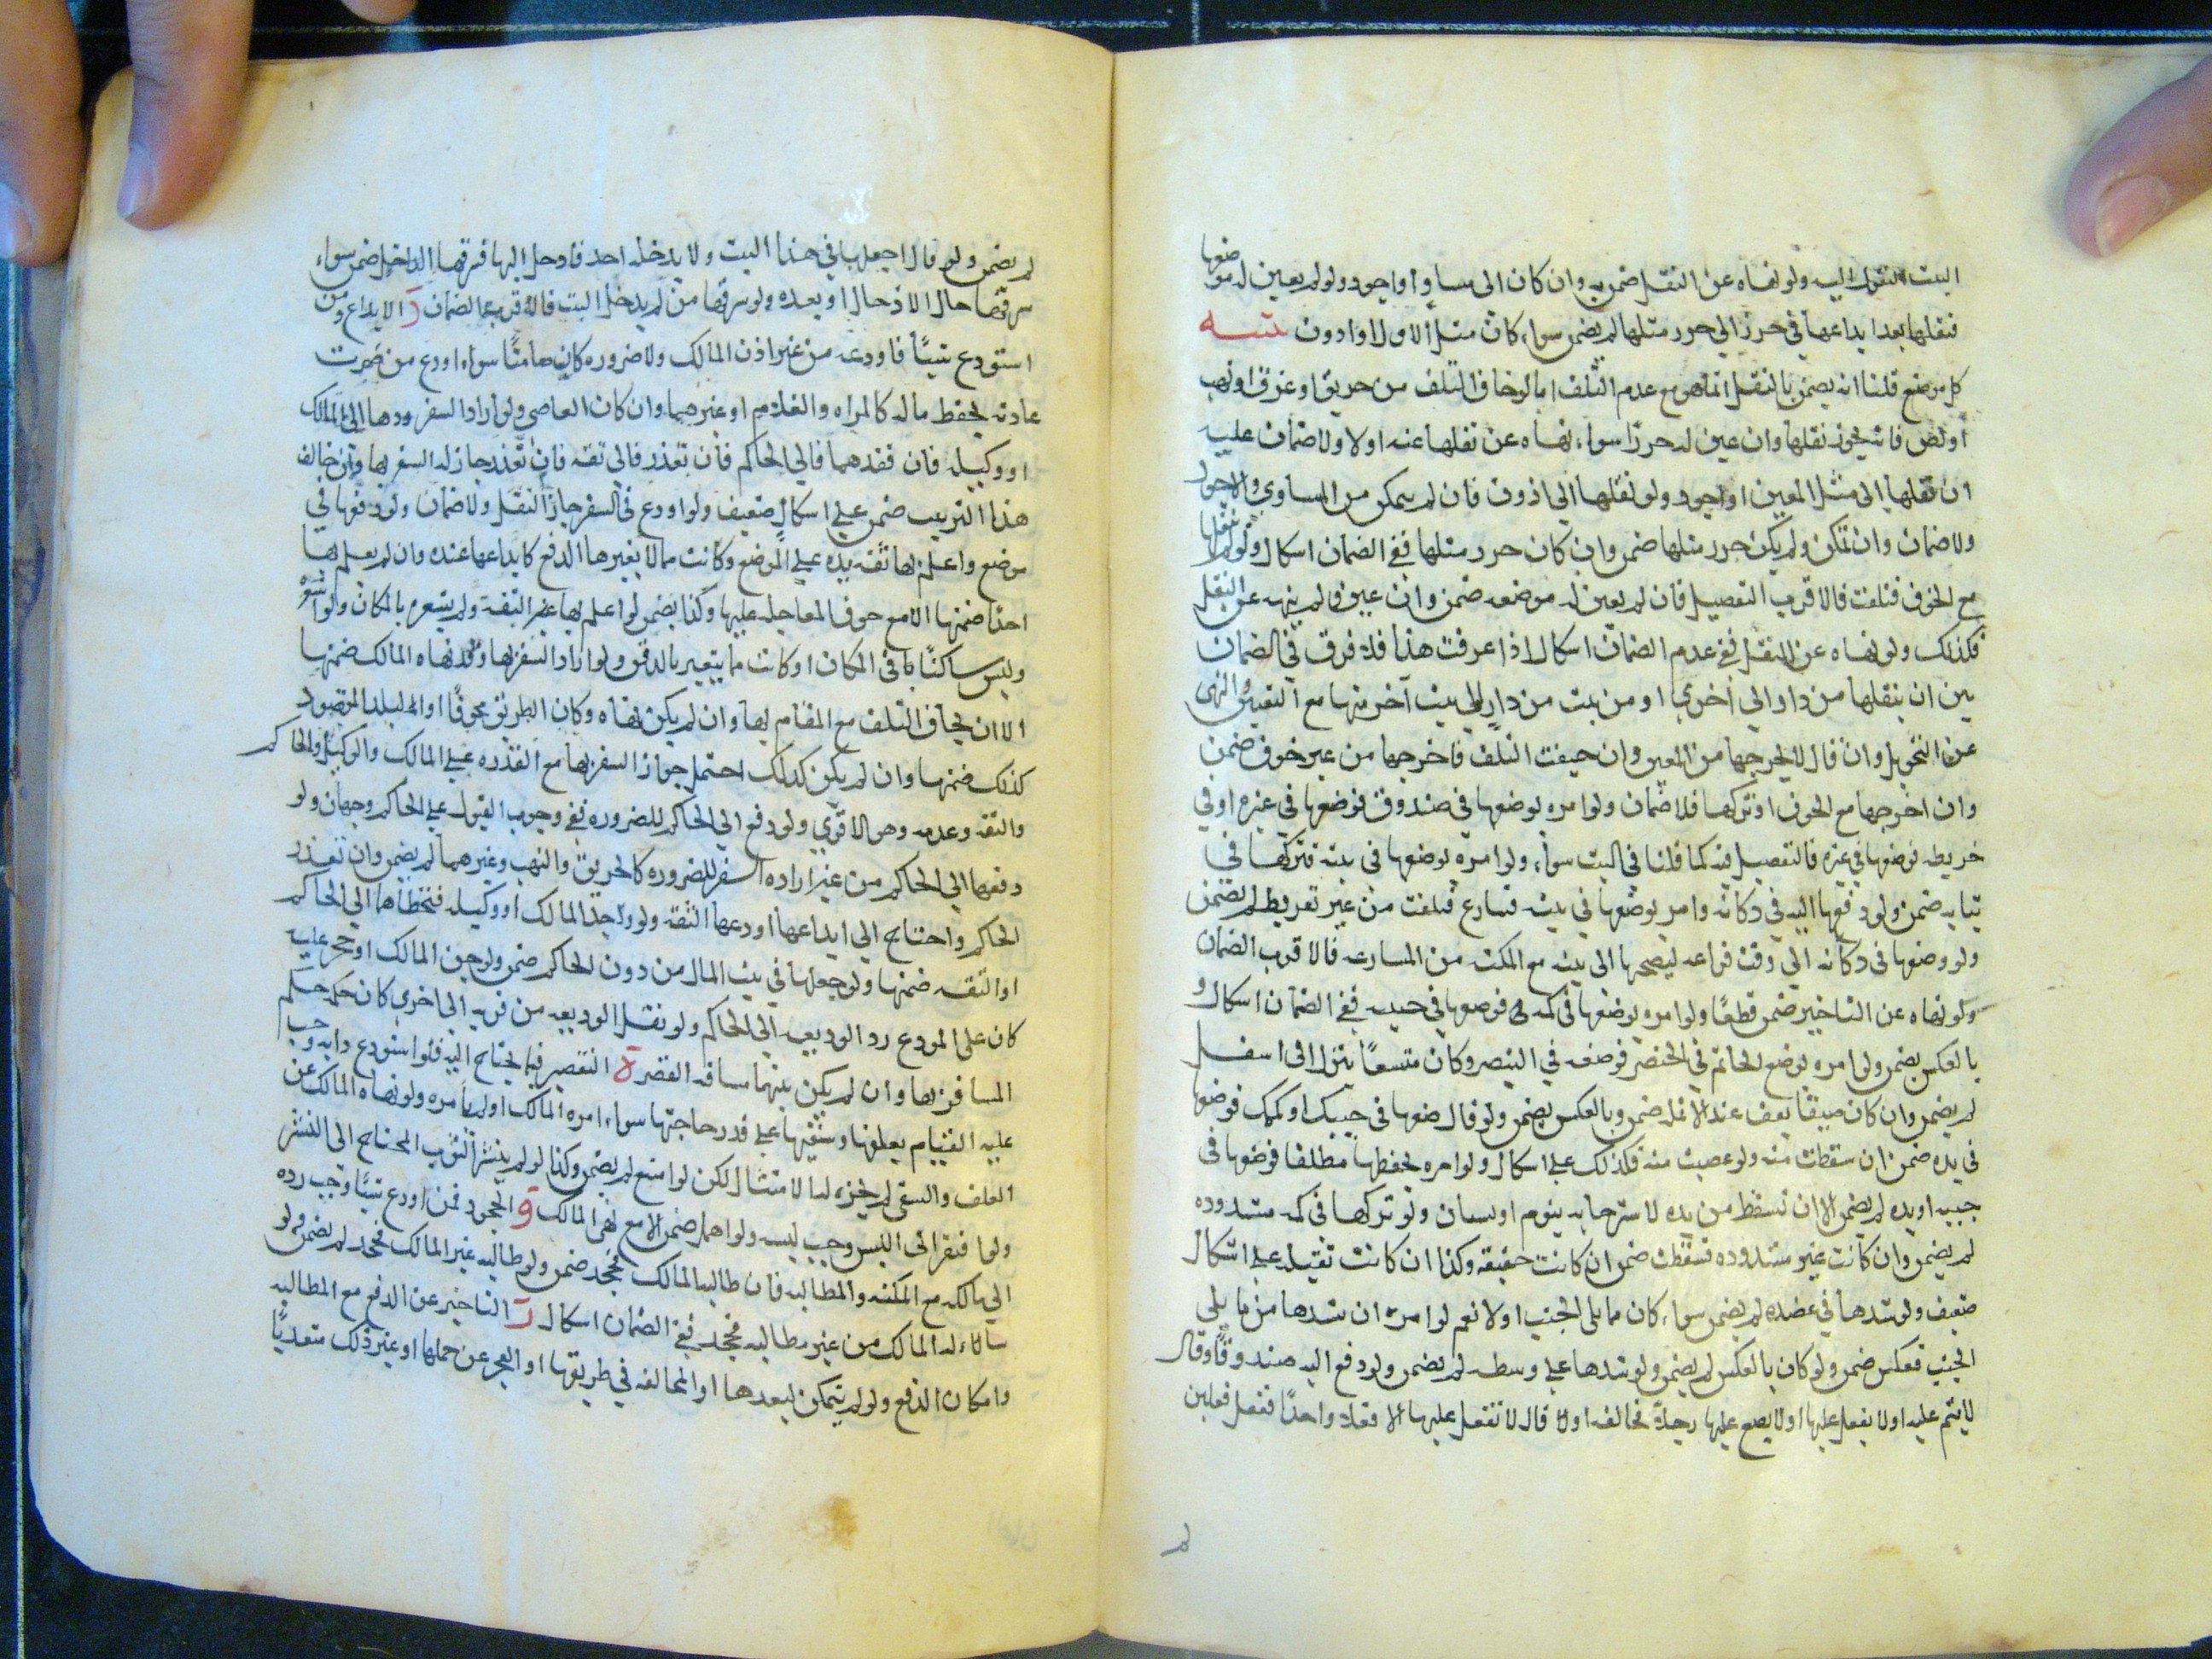 البيت المنقول اليه ولو نهاه عن النقل ضمن به وان كان الى مساو او اجود ولو لم يعين له موضعها
فنقلها بعد ايداعها في حرز الى حرز مثلها لم يضمن سواء كان مثل الاول او ادون تنبيه
كل موضع قلنا انه يضمن بالنقل انما هو مع عدم التلف اما لو خاف التلف من حريق او غرق او نهب
او لص فانه يجوز نقلها وان عين له حرزا سواء نهاه عن نقلها عنه او لا ولا ضمان عليه
ان نقلها الى مثل المعين او اجود ولو نقلها الى ادون فان لم يتمكن من المساوي والاجود
ولا ضمان وان تمكن ولم يكن حرز مثلها ضمن وان كان حرز مثلها ففي الضمان اشكال ولو لم ينقلها
مع الخوف فتلفت فالاقرب التفصيل فان لم يعين له موضعه ضمن وان عين ولم ينهه عن النقل
فكذلك ولو نهاه عن النقل ففي عدم الضمان اشكال اذا عرفت هذا فلا فرق في الضمان
بين ان ينقلها من دار الى اخرى او من بيت من دار الى بيت آخر منها مع التعيين والنهى
عن التحويل وان قال لا تخرجها من المعين وان خيفت التلف فاخرجها من غير خوف ضمن
وان اخرجها مع الخوف او تركها فلا ضمان ولو امره بوضعها في صندوق فوضعها في غيره او في
خريطه فوضعها في غيره فالتفصيل فيه كما قلنا في البيت سواء ولو امره بوضعها في بيته فتركها في
ثيابه ضمن ولو دفعها اليه في دكانه وامر بوضعها في بيته فسارع فتلفت من غير تفريط لم يضمن
ولو وضعها في دكانه الى وقت فراغه ليصحبها الى بيته مع المكنه من المسارعه فالاقرب الضمان
ولو نهاه عن التاخير ضمن قطعًا ولو امره بوضعها في كمه فوضعها في جيبه ففي الضمان اشكال و
بالعكس يضمن ولو امره بوضع الخاتم في الخنصر فوضعه في البنصر وكان متسعًا ينزل الى اسفل
لم يضمن وان كان ضيقًا يقف عند الانمله ضمن وبالعكس يضمن ولو قال ضعها في جيبك او كمك فوضعها
في يده ضمن ان سقطت منه ولو غصبت منه فكذلك على اشكال ولو امره بحفظها مطلقا فوضعها في
جيبه او يده لم يضمن الا ان تسقط من يده لاسترخائه بنوم او نسيان ولو تركها في كمه مشدوده
لم يضمن وان كانت غير مشدوده فسقطت ضمن ان كانت خفيفه وكذا ان كانت ثقيله على اشكال
ضعيف ولو شدها في عضده لم يضمن سواء كان مما يلى الجنب او لا نعم لو امره ان يشدها مما يلى
الجنب فعكس ضمن ولو كان بالعكس لم يضمن ولو شدها على وسطه لم يضمن ولو دفع اليه صندوقًا وقال
لا ينم عليه او لا يقفل عليها او لا يضع عليها رجلًا فخالفه او قال لا تقفل عليها الا قفلا واحدًا فقفل قفلين
لم
لم يضمن ولو قال اجعلها في هذا البيت ولا يدخله احد فادخل اليها فسرقها الداخل ضمن سواء
سرقها حال الادخال او بعده ولو سرقها من لم يدخل البيت فالاقرب الضمان د الايداع ومن
استودع شيئًا فاودعه من غير اذن المالك ولا ضروره كان ضامنًا سواء اودع من جرت
عادته بحفظ ماله كالمراه والغلام او غيرهما وان كان القاضي ولو اراد السفر ردها الى المالك
او وكيله فان فقدهما فالى الحاكم فان تعذر فالى ثقه فان تعذر جاز له السفر بها وان خالف
هذا الترتيب ضمن على اشكال ضعيف ولو اودع في السفر جاز النقل ولا ضمان ولو دفنها في
موضع واعلم بها ثقه يده على الموضع وكانت مما لا يغيرها الدفع كايداعها عنده وان لم يعلم بها
احدًا ضمنها الا مع خوف المعاجله عليها وكذا يضمن لو اعلم بها غير الثقة ولم يشعره بالمكان ولو اشعره
وليس ساكنًا في المكان او كانت مما يتغير بالدفن ولو اراد السفر بها وقد نهاه المالك ضمنها
الا ان يخاف التلف مع المقام بها وان لم يكن نهاه وكان الطريق مخوفًا او البلد المقصود
كذلك ضمنها وان لم يكن كذلك احتمل جواز السفر بها مع القدره على المالك والوكيل والحاكم
والثقه وعدمه وهو الاقوى ولو دفع الى الحاكم للضروره ففي وجوب القبول على الحاكم وجهان ولو
دفعها الى الحاكم من غير اراده السفر للضروره كالحريق والنهب وغيرهما لم يضمن وان تعذر
الحاكم واحتاج الى ايداعها اودعها الثقه ولو وجد المالك او وكيله فتخطاهما الى الحاكم
او الثقه ضمنها ولو جعلها في بيت المال من دون الحاكم ضمن ولو جن المالك او حجر عليه
كان على المودع رد الوديعه الى الحاكم ولو نقل الوديعه من قريه الى اخرى كان حكمه حكم
المسافر بها وان لم يكن بينهما مسافه القصر ه التقصير فيما يحتاج اليه فلو استودع دابه وجب
عليه القيام بعلفها وسقيها على قدر حاجتها سواء امره المالك او لم يامره ولو نهاه المالك عن
العلف والسقى لم يجز له الامتثال لكن لو امتنع لم يضمن وكذا لو لم ينشر الثوب المحتاج الى النشر
ولو افتقر الى اللبس وجب لبسه ولو اهمل ضمن الا مع نهى المالك و الجحود فمن اودع شيئًا وجب رده
الى مالكه مع المكنه والمطالبه فان طالبه المالك فجحد ضمن ولو طالبه غير المالك فجحد لم يضمن ولو
ساله المالك من غير مطالبه فجحد ففي الضمان اشكال ز التاخير عن الدفع مع المطالبه
وامكان الدفع ولو لم يتمكن لبعدها او المخافه في طريقها او العجز عن حملها او غير ذلك متعديًا